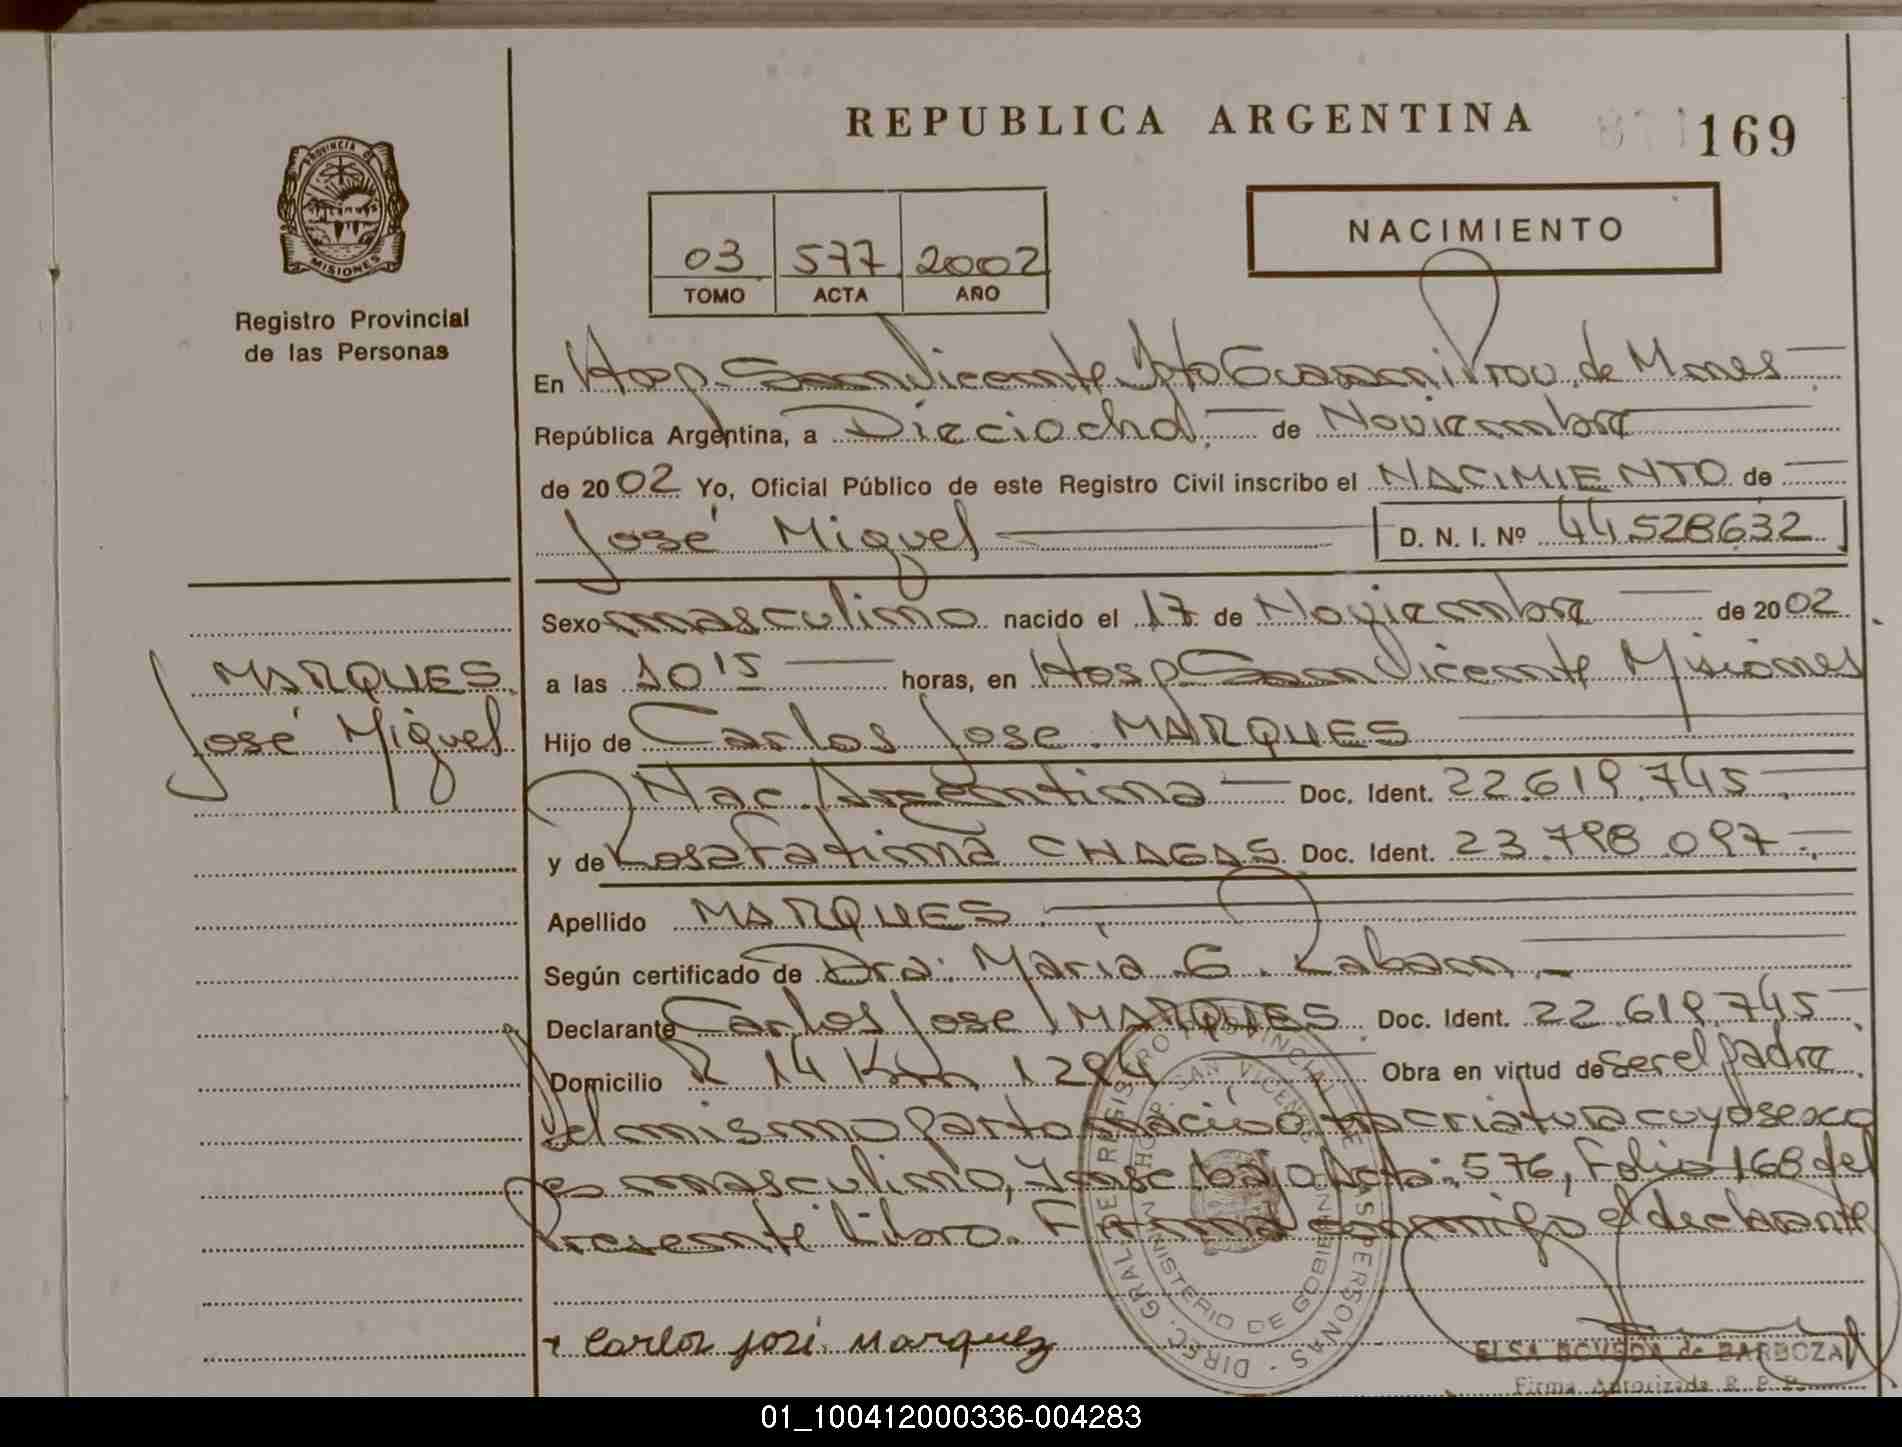 REPUBLICA ARGENTINA
169
PROVINCIA DE
MISIONES
Registro Provincial
de las Personas
03 577 2002
TOMO ACTA AÑO
NACIMIENTO
En Hosp. San Vicente Dpto Guarani Prov. de Mnes
República Argentina, a Dieciocho de Noviembre
de 2002 Yo, Oficial Público de este Registro Civil inscribo el NACIMIENTO de
José Miguel D. N. I. Nº 44528632
Sexo masculino nacido el 17 de Noviembre de 2002
MARQUES
a las 10 15 horas, en Hosp San Vicente Misiones
José Miguel
Hijo de Carlos Jose MARQUES
Nac. Argentina Doc. Ident. 22.619.745
y de Rosa Fatima CHAGAS Doc. Ident. 23.798.097
Apellido MARQUES
Según certificado de Dra. Maria G.
Declarante Carlos Jose MARQUES Doc. Ident. 22.619.745
Domicilio R 14 Km 1294 Obra en virtud de Ser el padre
del mismo parto nació otra criatura cuyo sexo
es masculino, bajo Acta: 576, Folio 168 del
Presente Libro. Firma conmigo el declarante
+ Carlos José Marquez
DIREC. GRAL. DE REGISTRO PROVINCIAL DE LAS PERSONAS
HOSP. SAN VICENTE
MINISTERIO DE GOBIERNO
ELSA BOVEDA de BARBOZA
Firma Autorizada R. P. P.
01_100412000336-004283